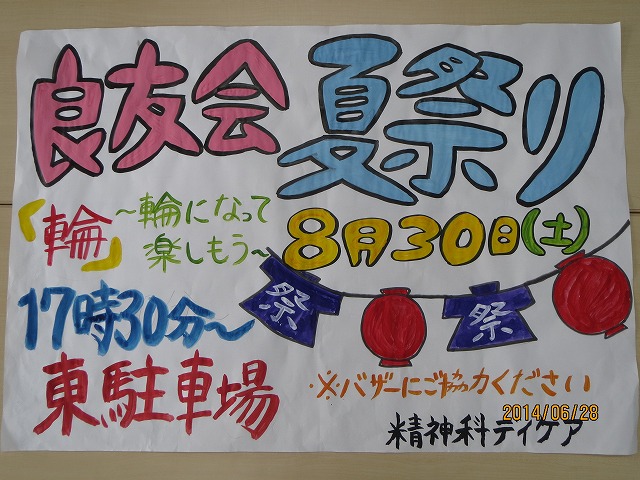 良友会 夏祭り
「輪」 ～輪になって
楽しもう～
8月30日(土)
祭 祭
17時30分～
東駐車場
※バザーにご協力ください
2014/06/28
精神科デイケア